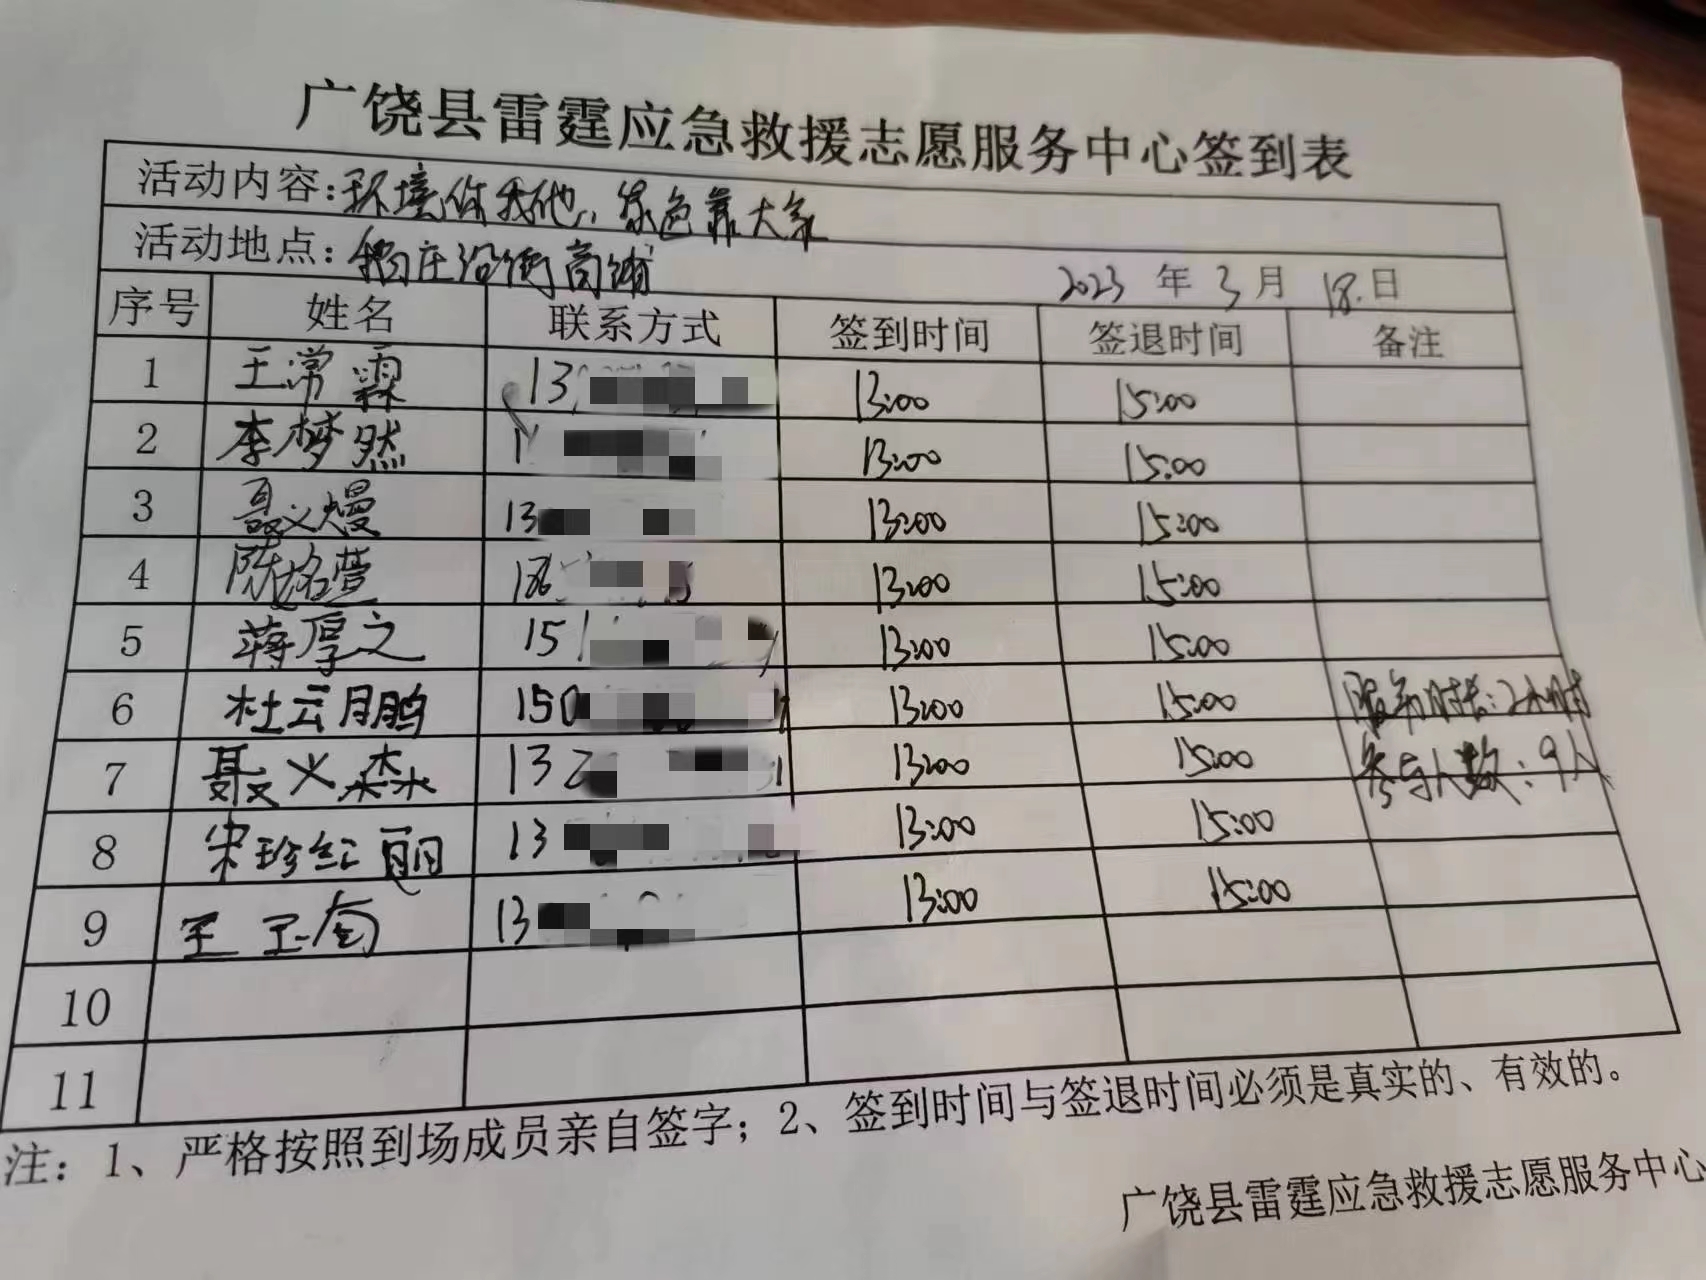 广饶县雷霆应急救援志愿服务中心签到表
活动内容:环境你我他,绿色靠大家
活动地点:杨庄沿街商铺 2023年3月18日
序号 姓名 联系方式 签到时间 签退时间 备注
1 王常霖 13 13:00 15:00
2 李梦然 1 13:00 15:00
3 聂义熳 13 13:00 15:00
4 陈铭萱 186 13:00 15:00
5 蒋厚之 151 13:00 15:00
6 杜云鹏 150 13:00 15:00 服务时长:2小时
7 聂义森 132 13:00 15:00 参与人数:9人
8 宋珍红 13 13:00 15:00
9 王玉 13 13:00 15:00
10
11
注:1、严格按照到场成员亲自签字;2、签到时间与签退时间必须是真实的、有效的。
广饶县雷霆应急救援志愿服务中心